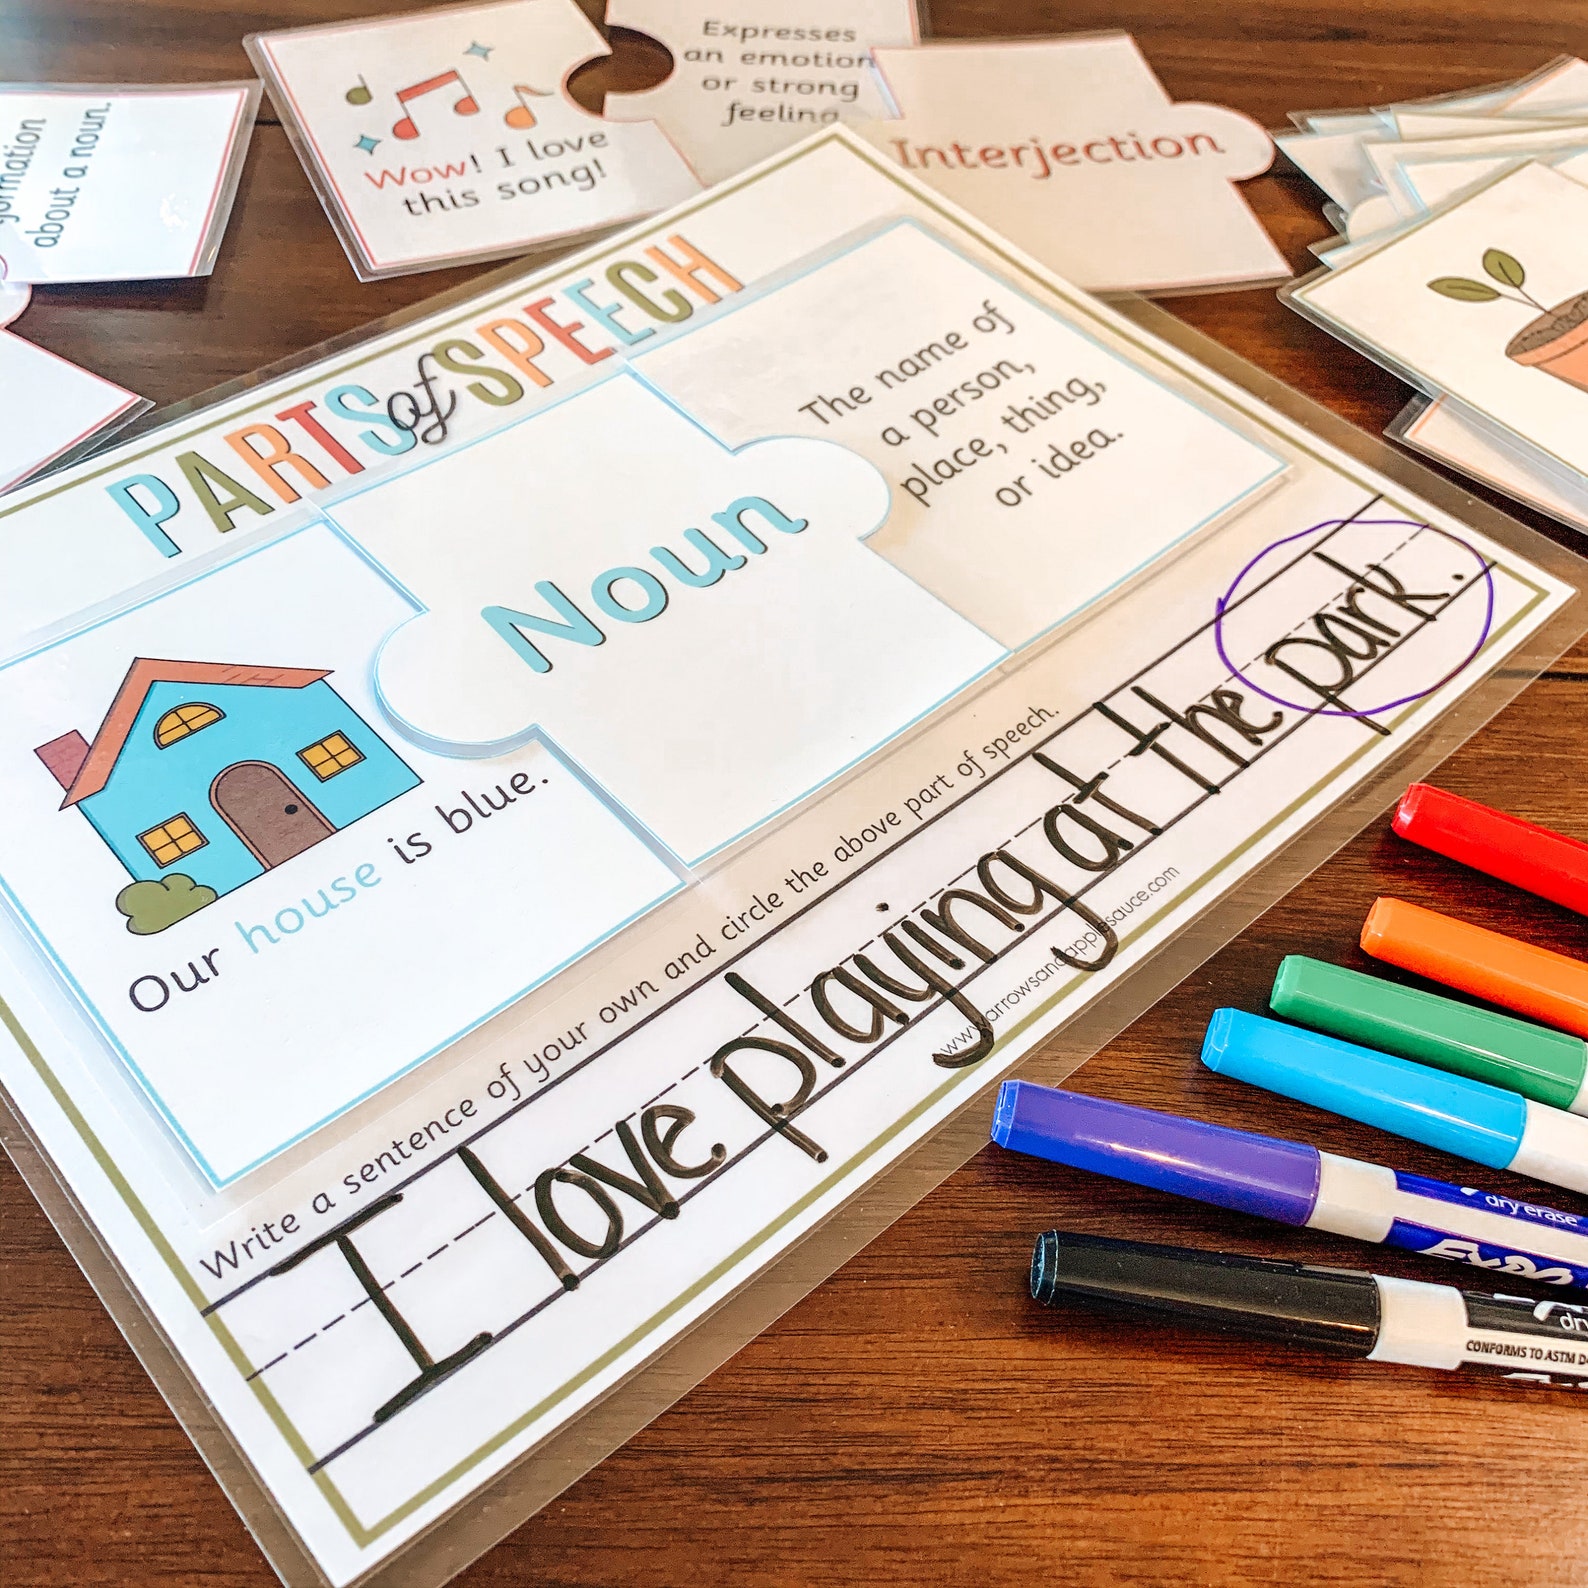 about a noun.
Wow! I love
this song!
Expresses
an emotion
or strong
feeling
Interjection
PARTS of SPEECH
Our house is blue.
Noun
The name of
a person,
place, thing,
or idea.
Write a sentence of your own and circle the above part of speech.
I love playing at the park.
www.arrowsandapplesauce.com
dry erase
EXPO
CONFORMS TO ASTM D